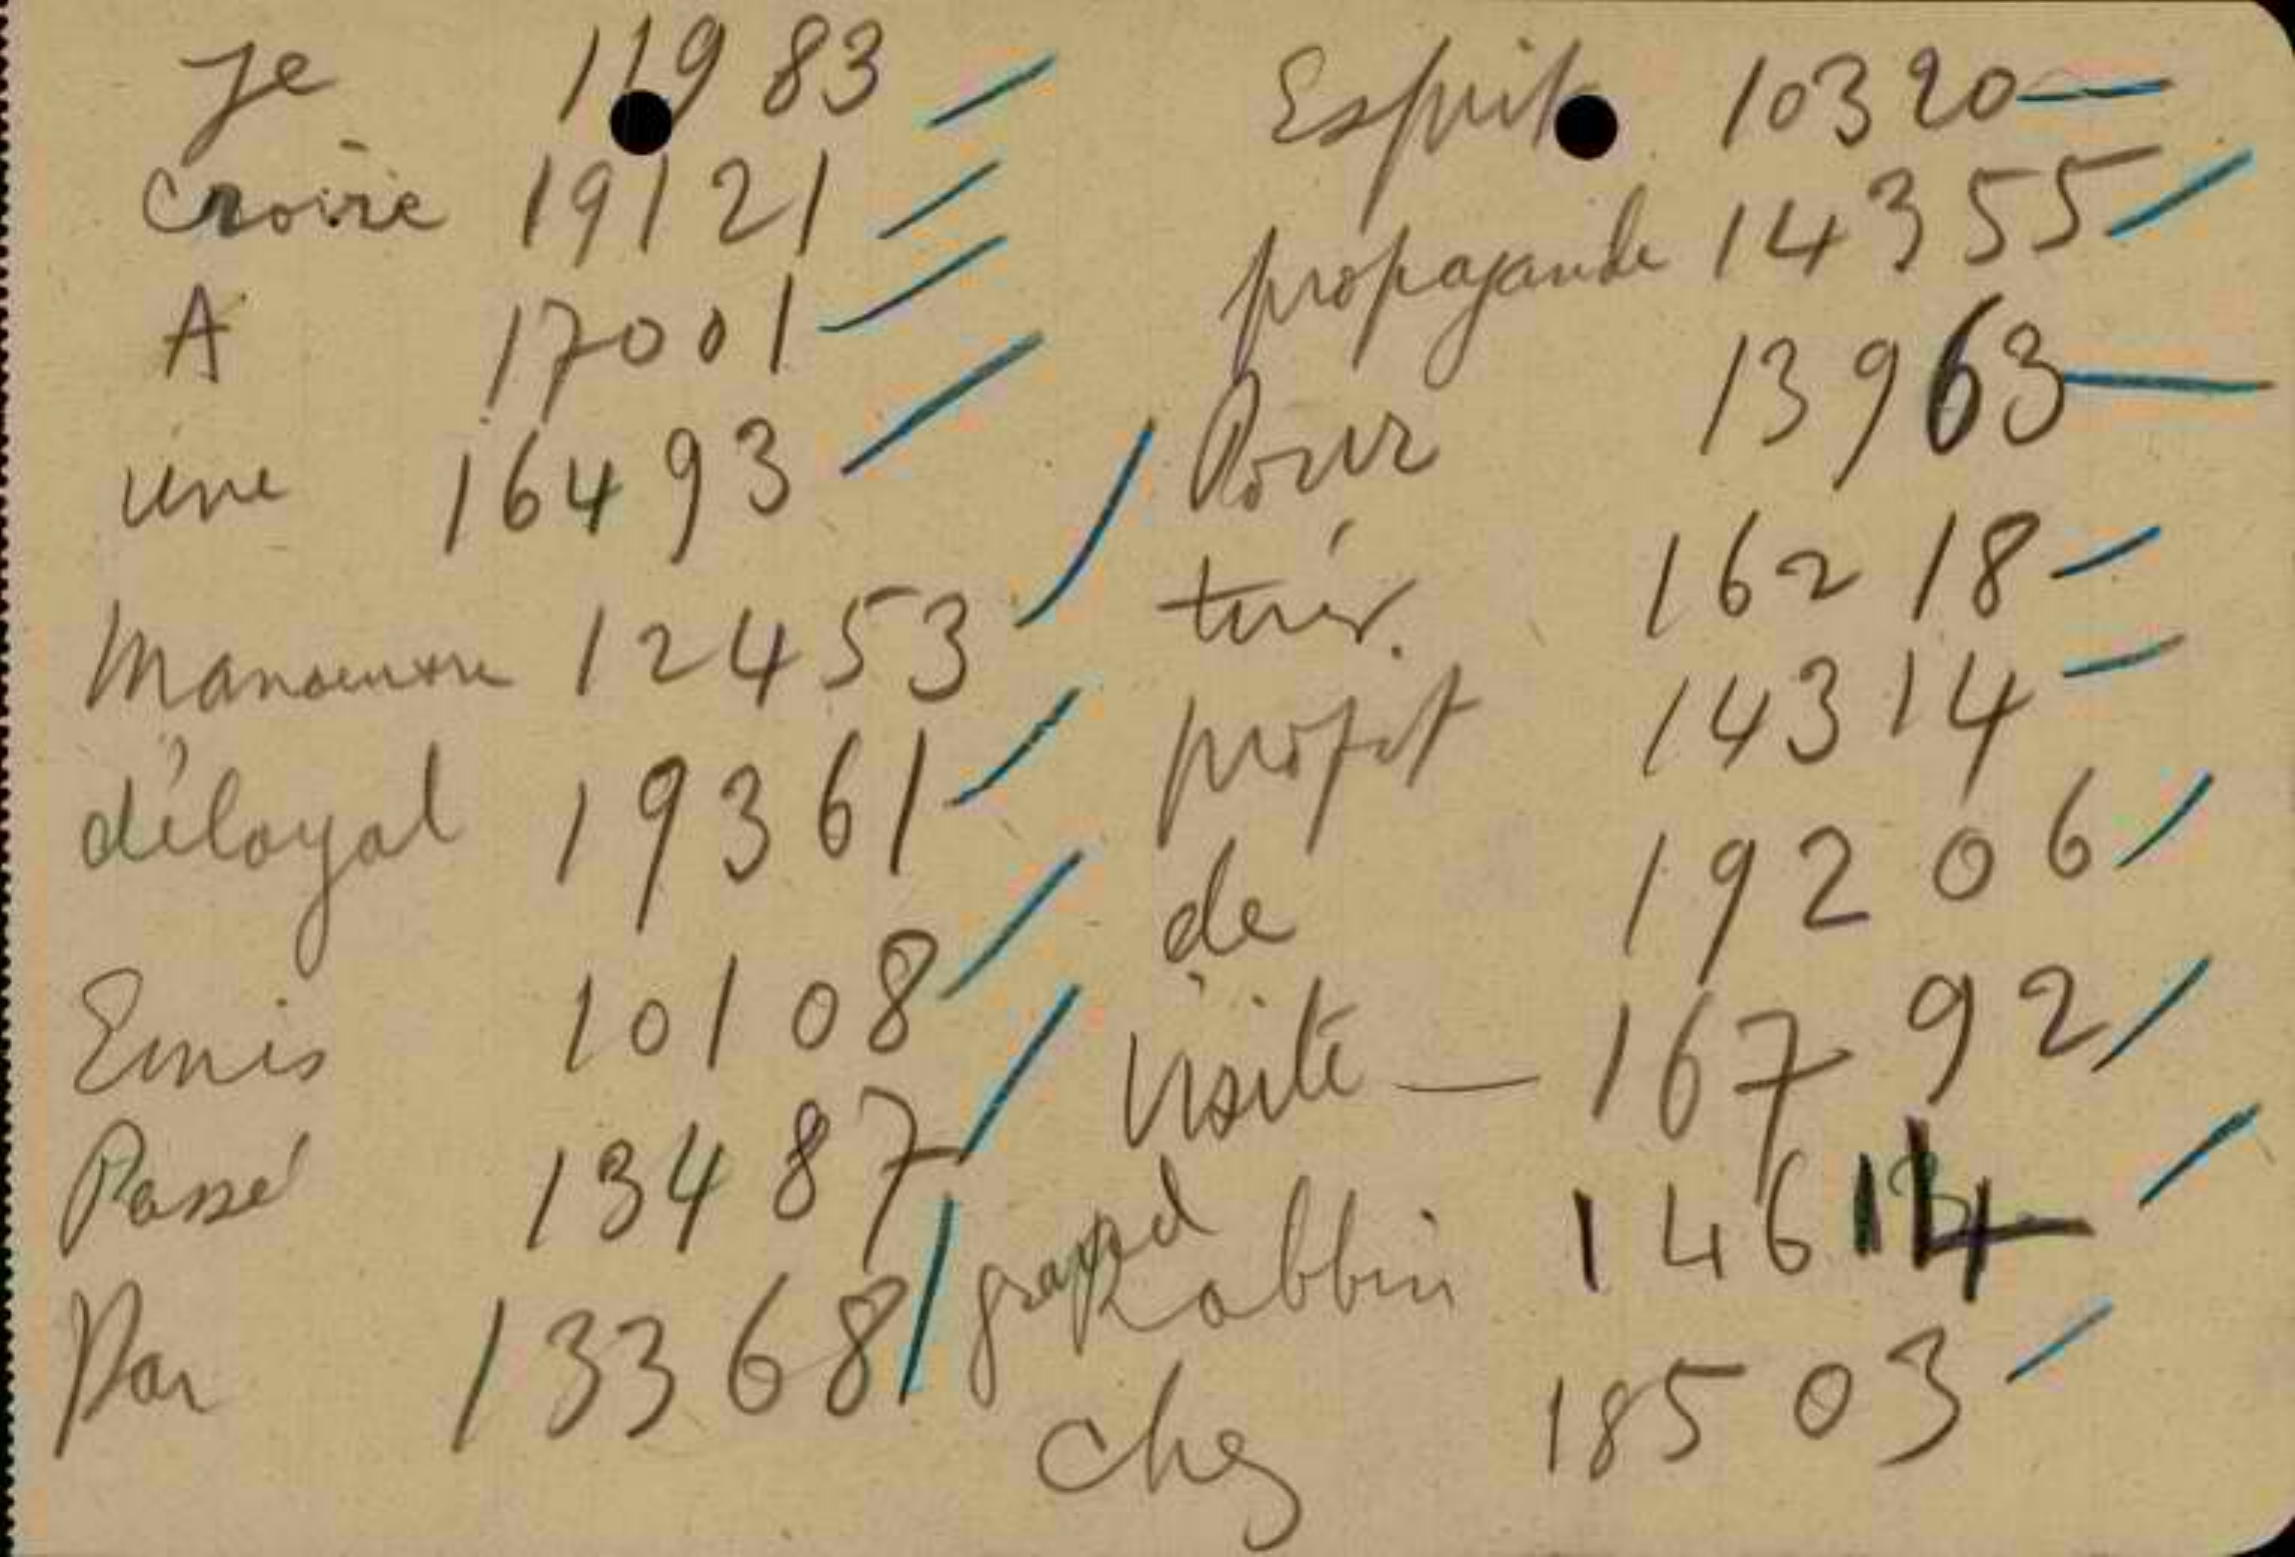 Je 11983
croire 19121
A 17001
une 16493
Manoeuvre 12453
déloyal 19361
Emis 10108
Passé 13487
Par 13368
Esprit 10320
propagande 14355
Pour 13963
tirer 16218
profit 14314
de 19206
visite — 16792
grand
Rabbin 14614
chez 18503